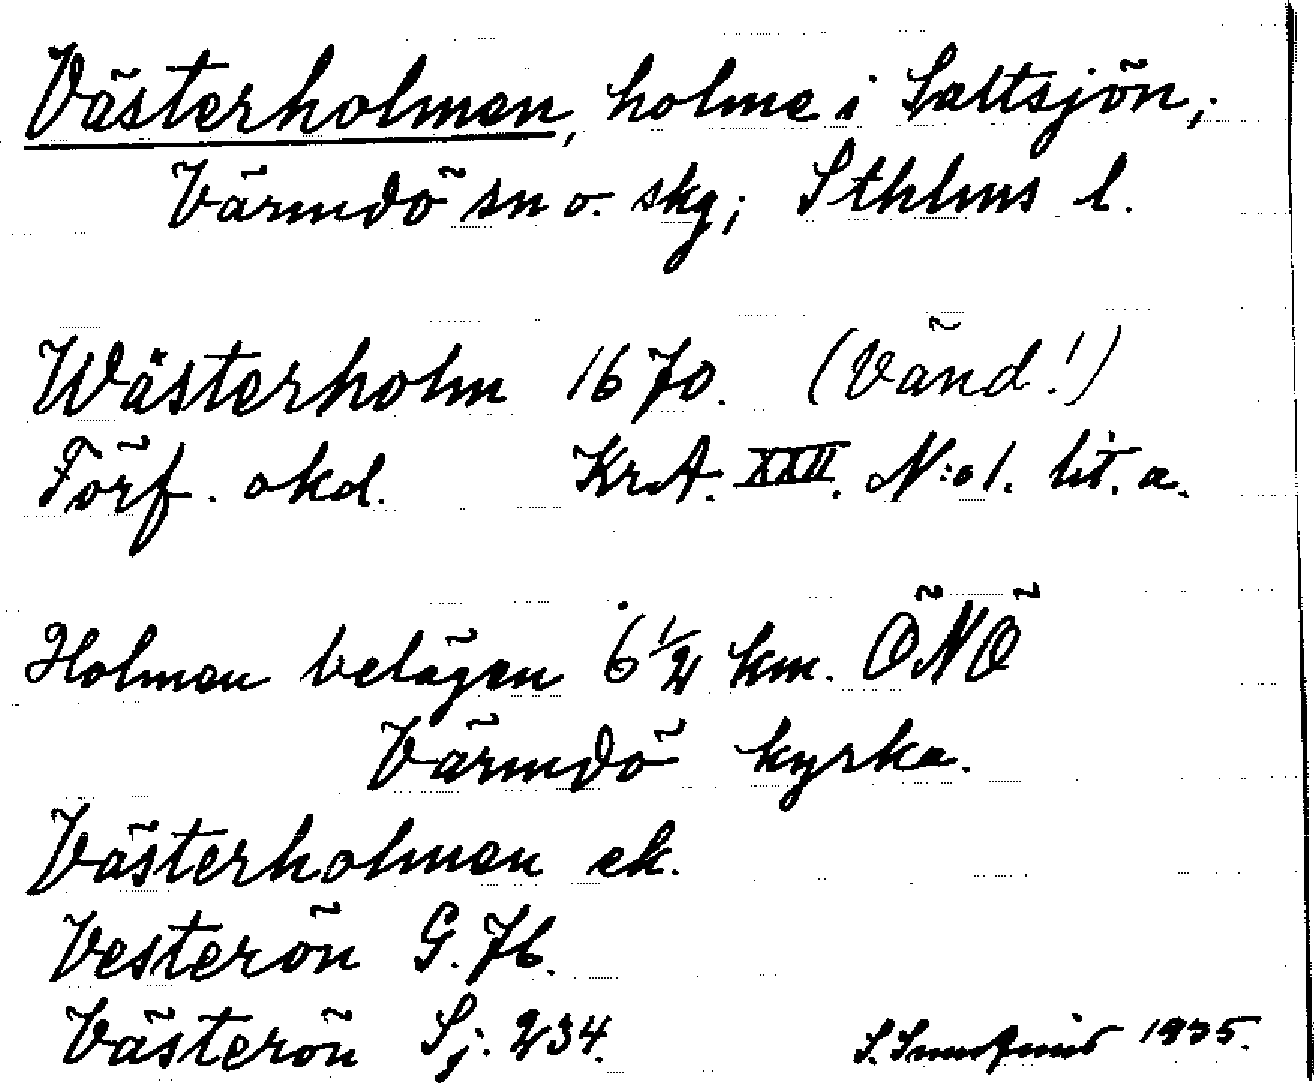 Västerholmen, holme i Saltsjön,
Värmdö sn o. skg; Sthlms l.
Wästerholm 1670. (Vänd!)
Förf. okd. KrA. XXII. N:o 1. lit. a.
Holmen belägen 6 1/2 km. ÖNÖ
Värmdö kyrka.
Västerholmen ek.
Vesterön G. 76.
Västerön Sj. 234.
S. 1935.